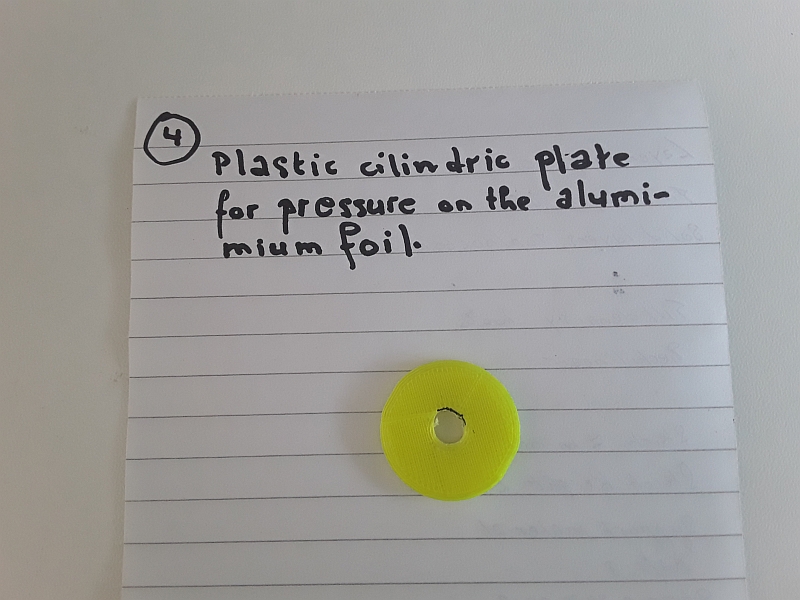 4
Plastic cilindric plate
for pressure on the alumi-
mium foil.